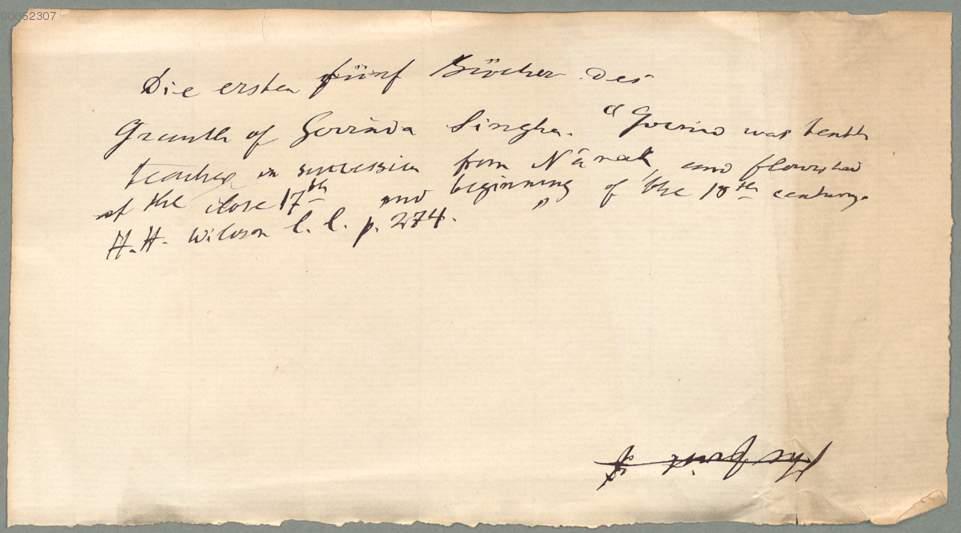 00052307
Die ersten fünf Bücher des
Granth of Govinda Singha. "Govind was tenth
teacher in succession from Nának, and flourished
at the close 17th and beginning of the 18th century.
H. H. Wilson l. l. p. 274. "